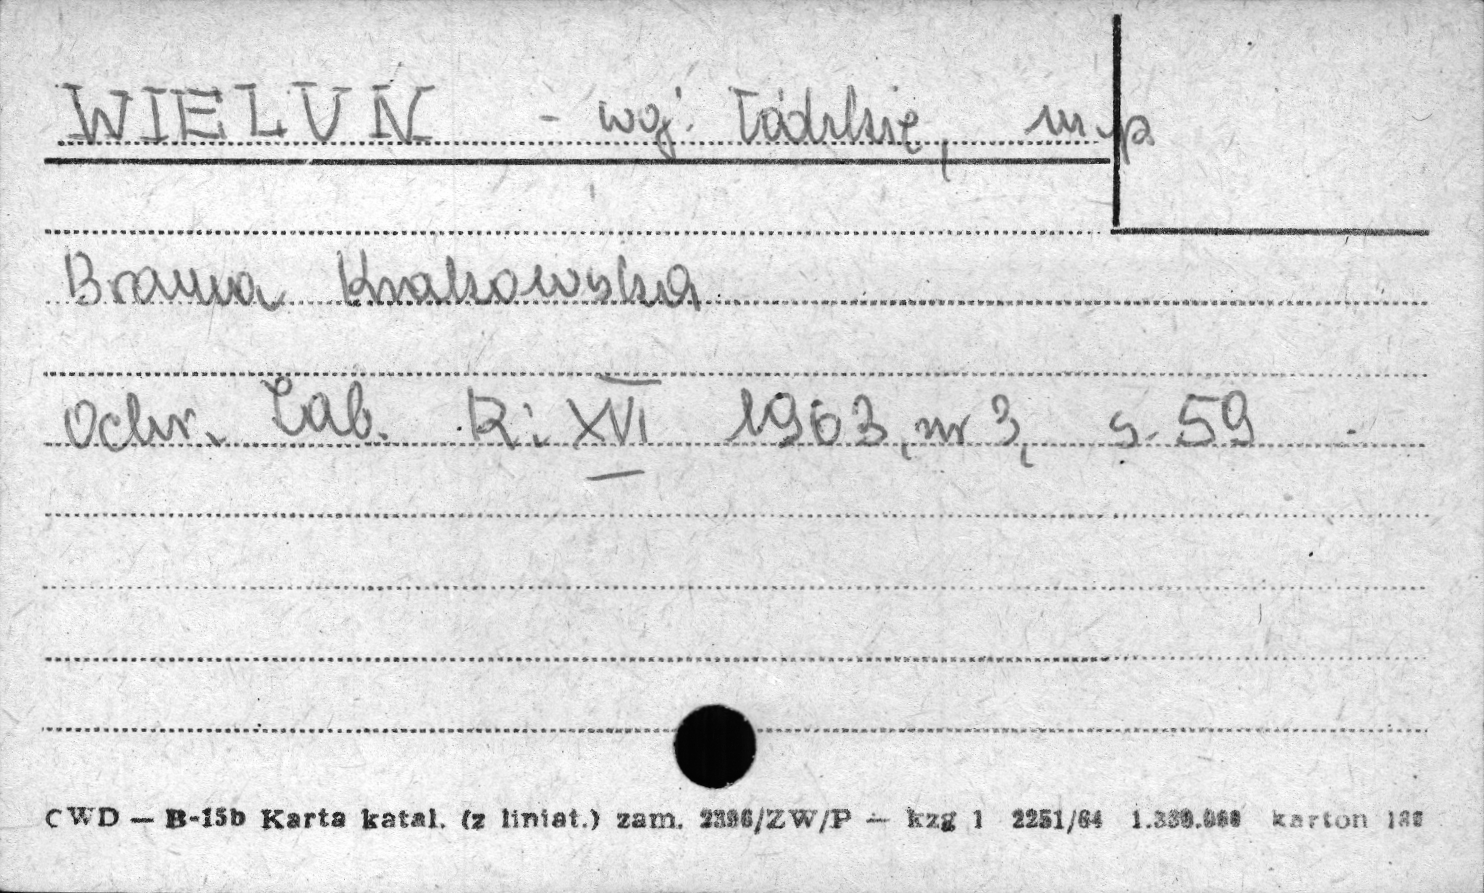 WIELUŃ - woj. Łódzkie, m. p
Brama Krakowska
Ochr. Zab. R: XVI 1963, nr 3, s. 59
CWD — B-15b Karta katal. (z liniat.) zam. 2396/ZW/P — kzg 1 2251/64 karton